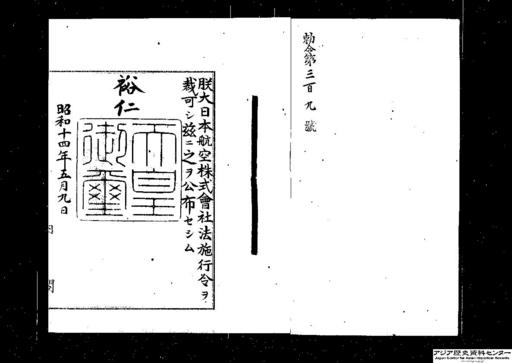 勅令第三百九號
朕大日本航空株式會社法施行令ヲ
裁可シ茲ニ之ヲ公布セシム
裕仁
天皇
御璽
昭和十四年五月九日
内閣
アジア歴史資料センター
Japan Center for Asian Historical Records